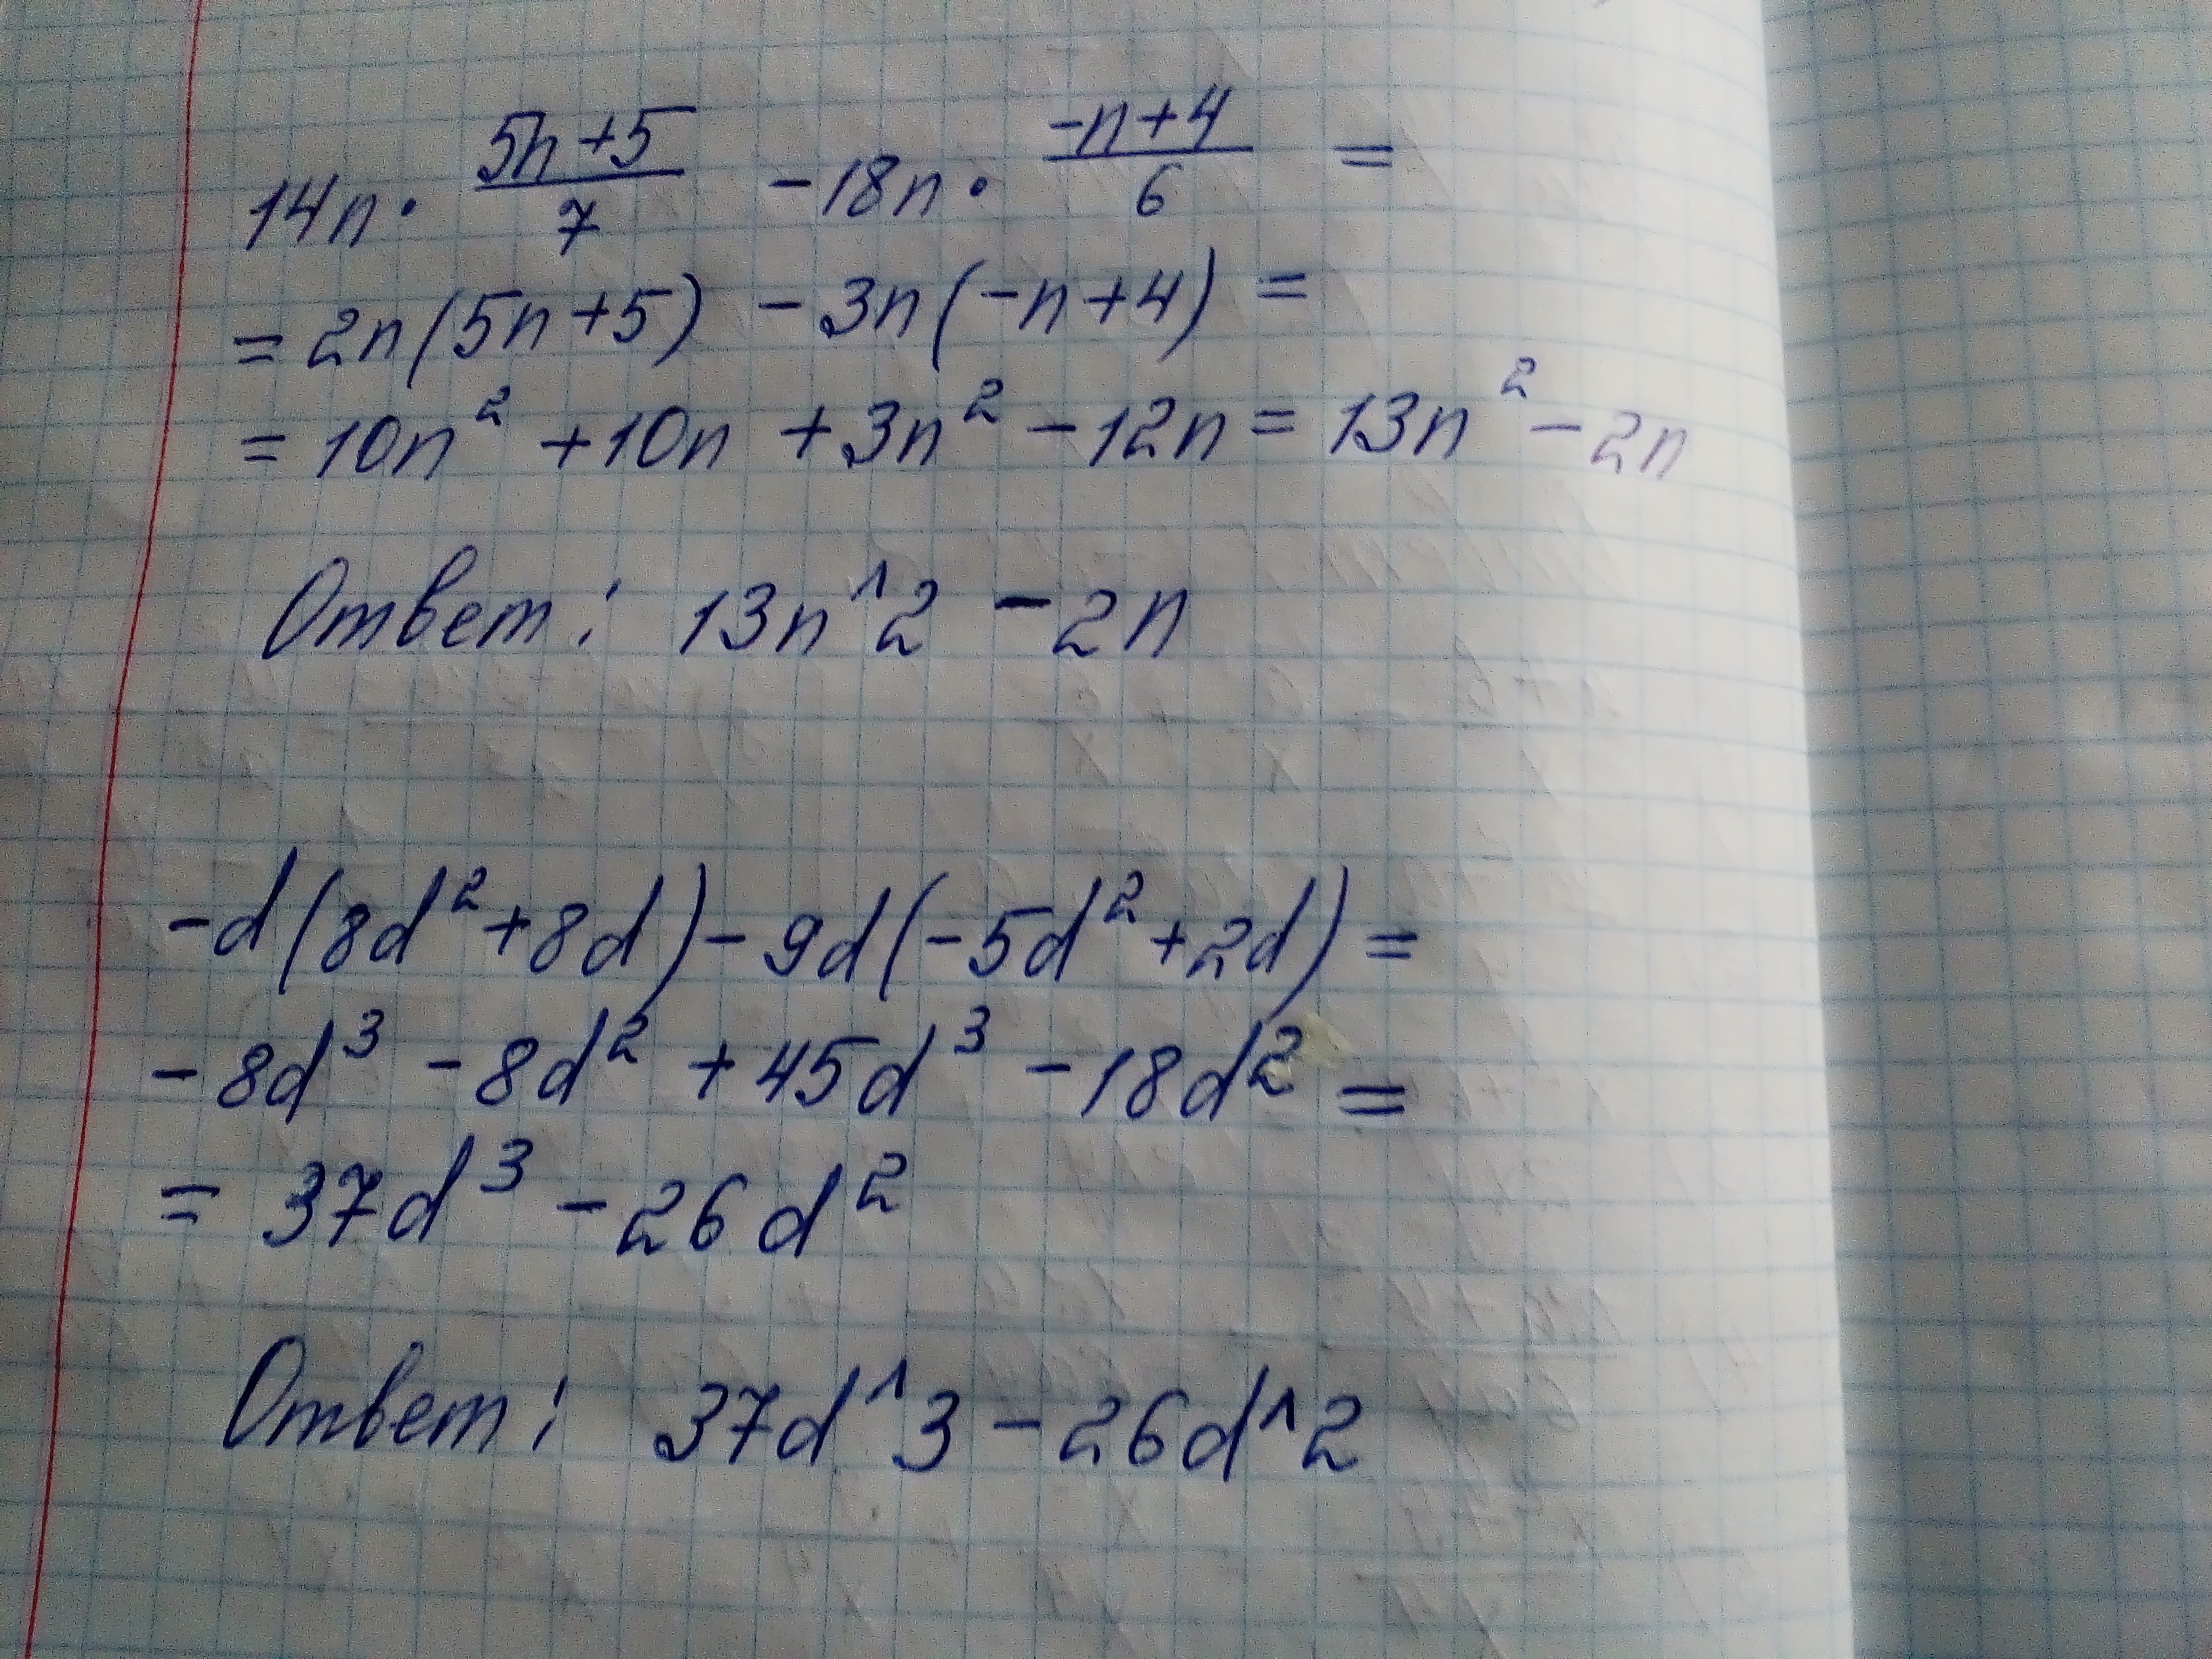 14n · (5n+5)/7 - 18n · (-n+4)/6 =
= 2n(5n+5) - 3n(-n+4) =
= 10n² + 10n + 3n² - 12n = 13n² - 2n
Ответ: 13n^2 - 2n
-d(8d²+8d) - 9d(-5d²+2d) =
-8d³ - 8d² + 45d³ - 18d² =
= 37d³ - 26d²
Ответ: 37d^3 - 26d^2